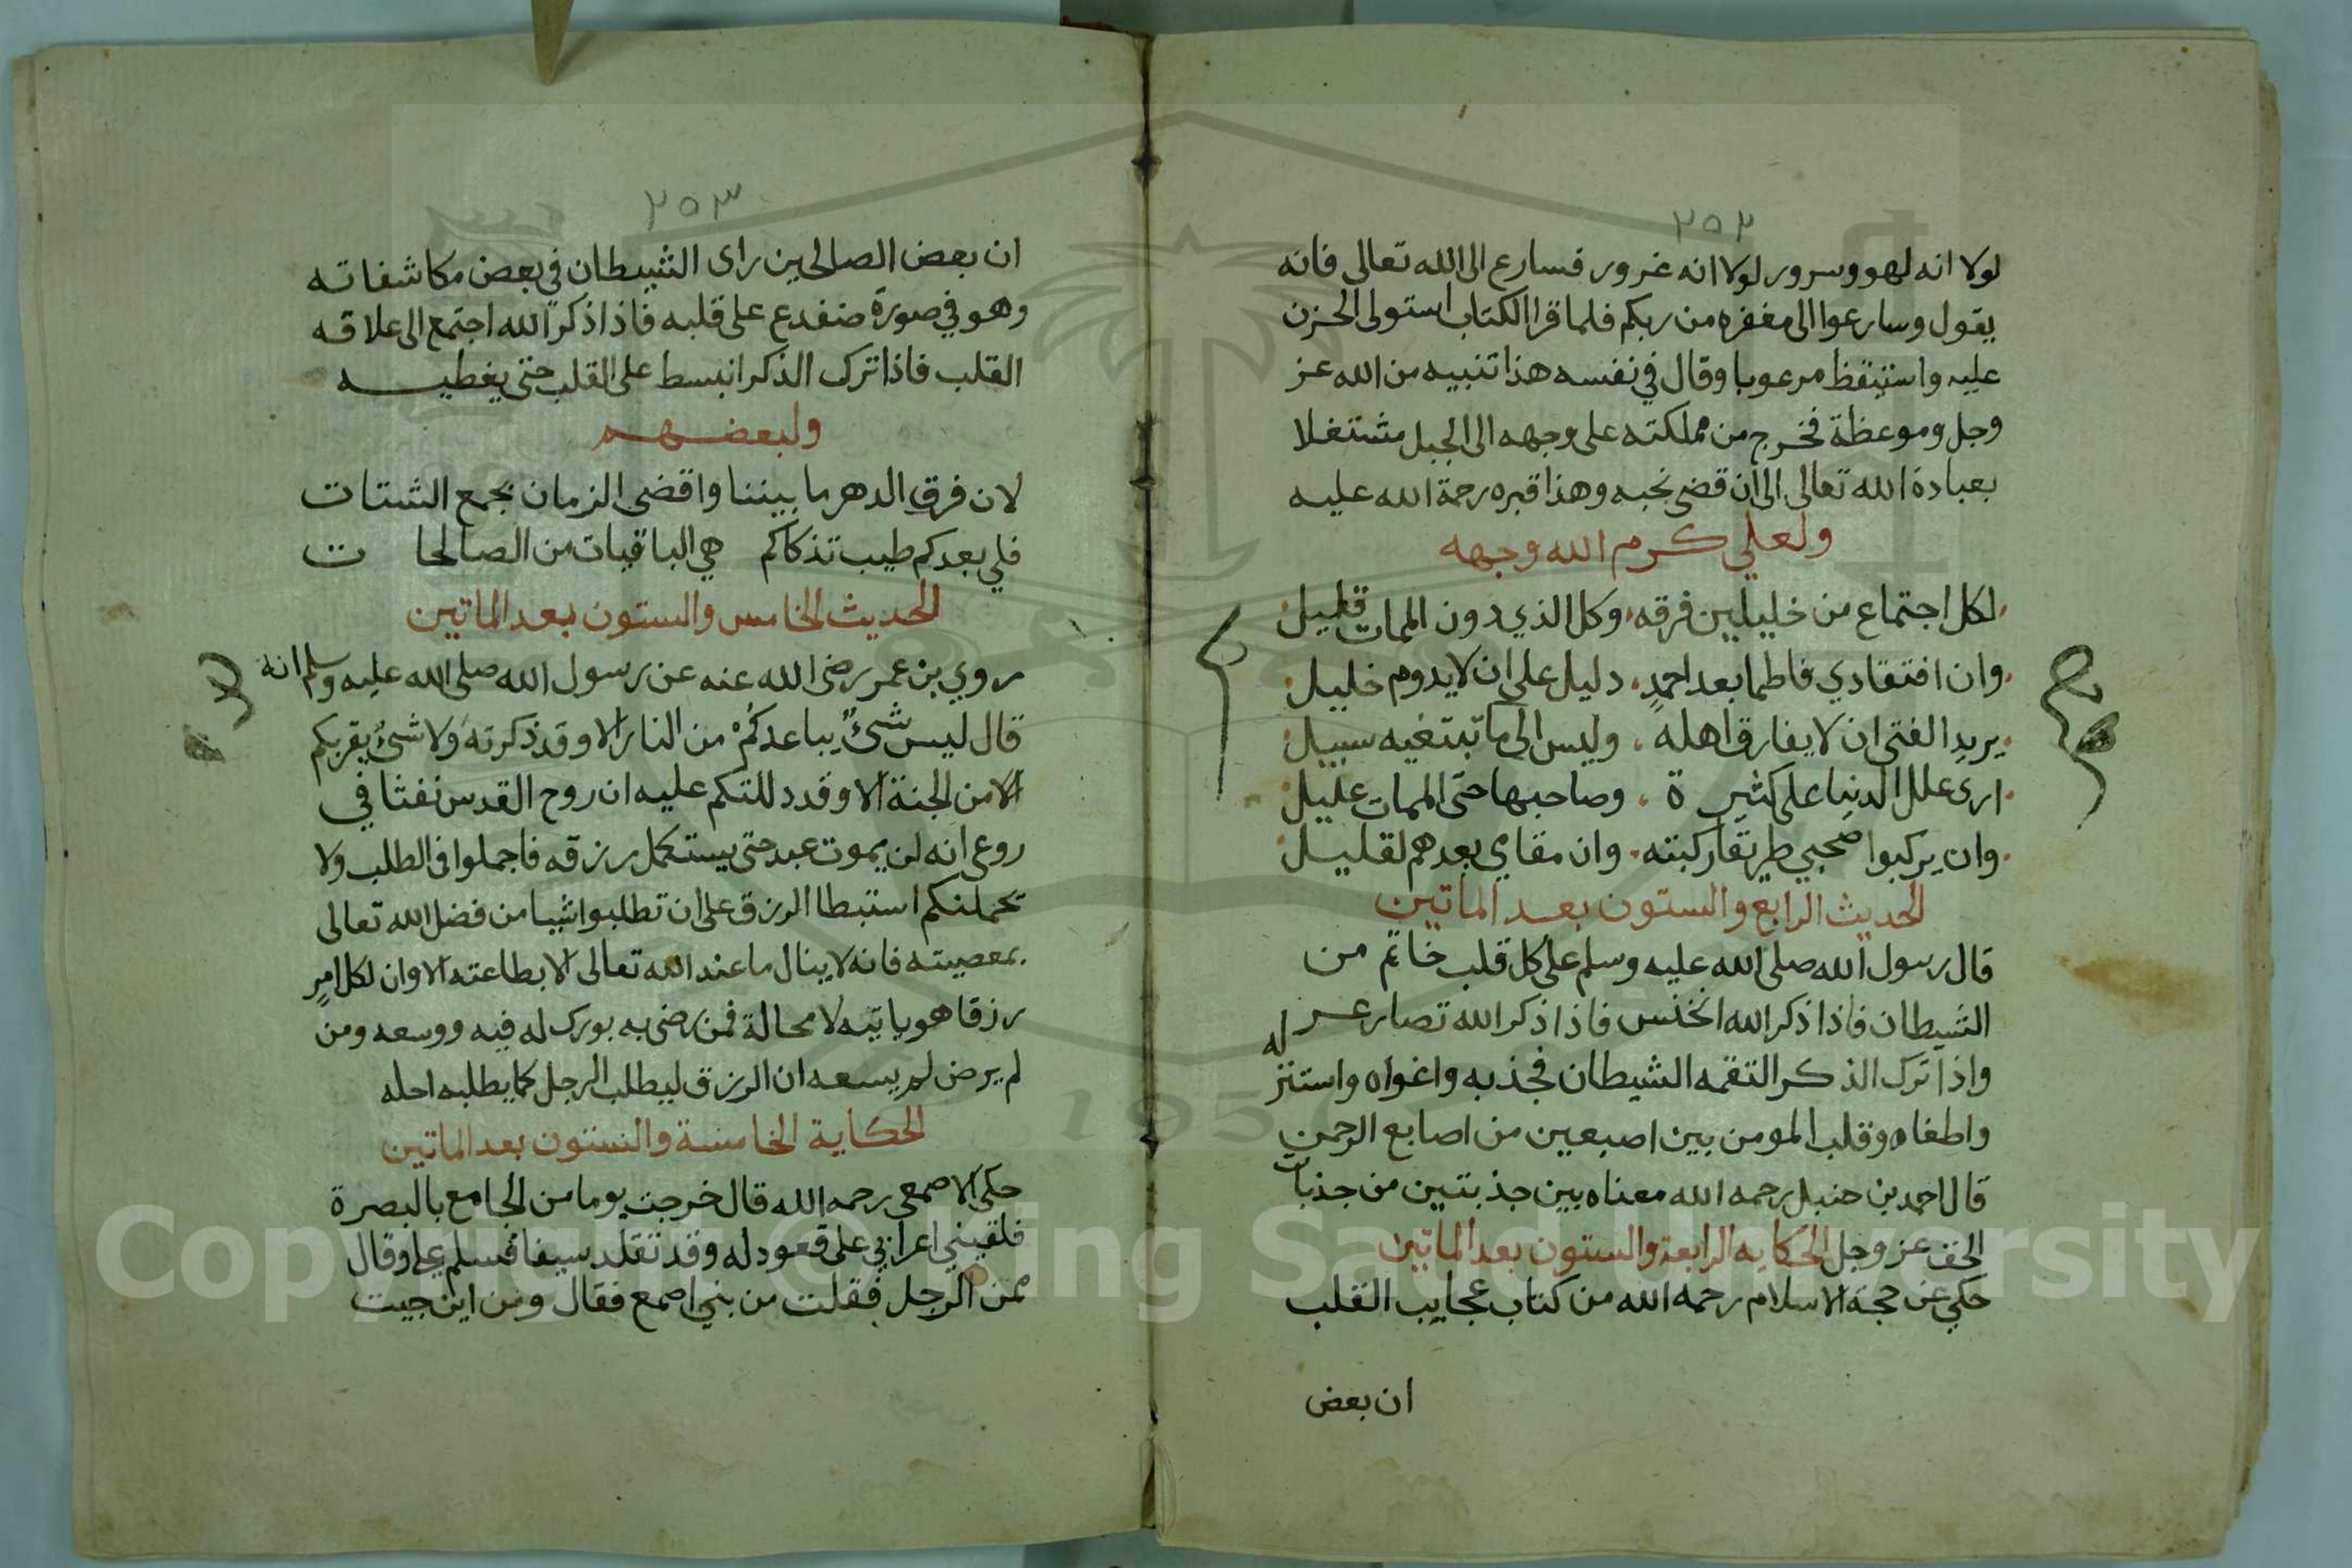 ٢٥٢
لولا انه لهو وسرور لولا انه غرور فسارع الى الله تعالى فانه
يقول وسارعوا الى مغفره من ربكم فلما قرا الكتاب استولى الحزن
عليه واستيقظ مرعوبا وقال في نفسه هذا تنبيه من الله عز
وجل وموعظة فخرج من مملكته على وجهه الى الجبل مشتغلا
بعبادة الله تعالى الى ان قضى نحبه وهذا قبره رحمة الله عليه
ولعلي كرم الله وجهه
لكل اجتماع من خليلين فرقه وكل الذي دون الممات قليل
وان افتقادي فاطما بعد احمد دليل على ان لا يدوم خليل
يريد الفتى ان لا يفارق اهله وليس الى ما تبتغيه سبيل
ارى علل الدنيا على كثيرة وصاحبها حتى الممات عليل
وان يركبوا صحبي طريقا ركبته وان مقامي بعدهم لقليل
الحديث الرابع والستون بعد الماتين
قال رسول الله صلى الله عليه وسلم على كل قلب خاتم من
الشيطان فاذا ذكر الله انخنس فاذا ذكر الله تصارعـر
واذا ترك الذكر التقمه الشيطان فجذبه واغواه واستنزله
واطغاه وقلب المومن بين اصبعين من اصابع الرحمن
قال احمد بن حنبل رحمه الله معناه بين جذبتين من جذبات
الحق عز وجل الحكايه الرابعة والستون بعد الماتين
حكي عن حجة الاسلام رحمه الله من كتاب عجايب القلب
ان بعض
٢٥٣
ان بعض الصالحين راى الشيطان في بعض مكاشفاته
وهو في صورة ضفدع على قلبه فاذا ذكر الله اجتمع الى علاقه
القلب فاذا ترك الذكر انبسط على القلب حتى يغطيه
ولبعضهم
لان فرق الدهر ما بيننا واقضى الزمان بجمع الشتات
فلي بعدكم طيب تذكاكم هي الباقيات من الصالحات
الحديث الخامس والستون بعد الماتين
روي بن عمر رضى الله عنه عن رسول الله صلى الله عليه وسلم انه
قال ليس شئ يباعدكم من النار الا وقد ذكرته ولا شئ يقربكم
الا من الجنة الا وقد دللتكم عليه ان روح القدس نفثا في
روعى انه لن يموت عبد حتى يستكمل رزقه فاجملوا فى الطلب ولا
تحملنكم استبطا الرزق على ان تطلبوا شيا من فضل الله تعالى
بمعصيته فانه لا ينال ما عند الله تعالى الا بطاعته الا وان لكل امر
رزقا هو ياتيه لا محالة فمن رضى به بورك له فيه ووسعه ومن
لم يرض لم يسعه ان الرزق ليطلب الرجل كما يطلبه احله
الحكاية الخامسة والستون بعد الماتين
حكى الاصمعى رحمه الله قال خرجت يوما من الجامع بالبصرة
فلقيني اعرابي على قعود له وقد تقلد سيفا فسلم علي وقال
ممن الرجل فقلت من بني اصمع فقال ومن اين جيت
Copyright © King Saud University
1957